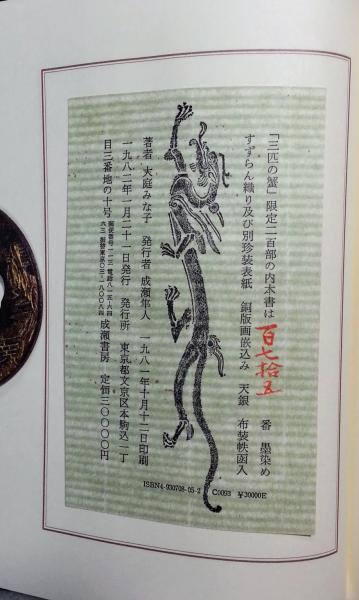 「三匹の蟹」限定二百部の内本書は 百七拾五 番 墨染め
すずらん織り及び別珍装表紙 銅版画嵌込み 天銀 布装帙函入
著者 大庭みな子 発行者 成瀬隼人 一九八一年十月十二日印刷
一九八二年一月二十一日発行 発行所 東京都文京区本駒込二丁
目三番地の十号 成瀬書房 定価三〇〇〇〇円
ISBN4-930708-05-2 C0093 ¥30000E